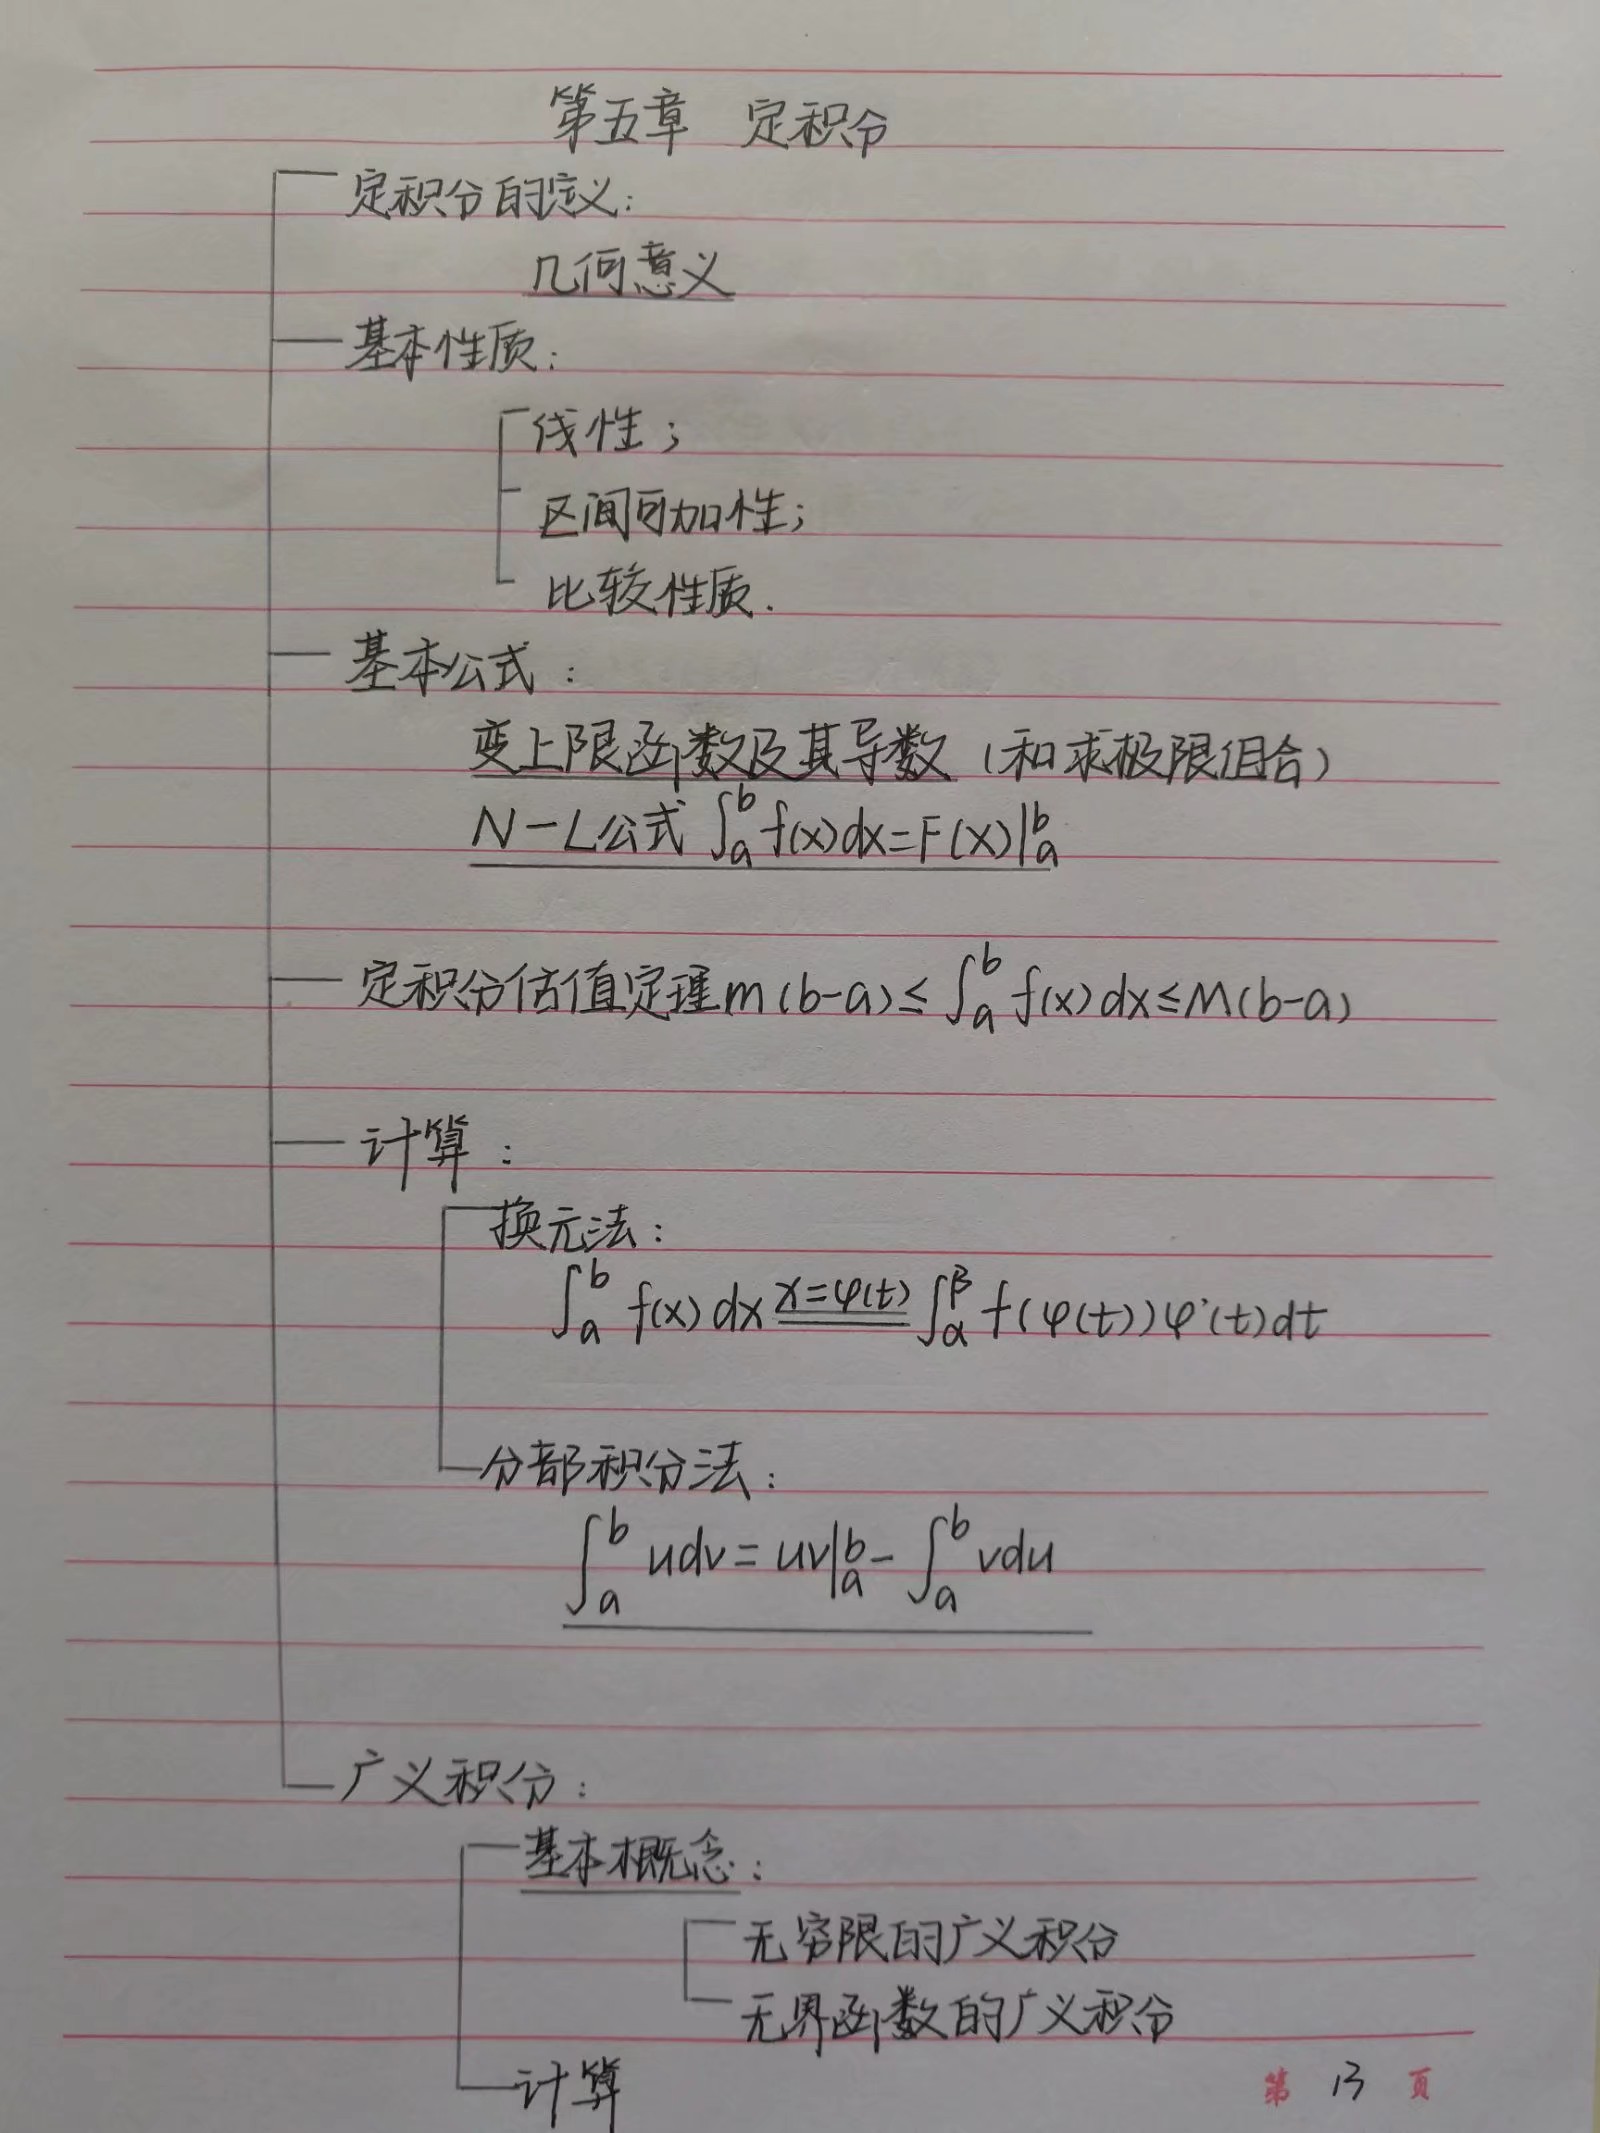 第五章 定积分
定积分的定义:
几何意义
基本性质:
线性;
区间可加性;
比较性质.
基本公式:
变上限函数及其导数(和求极限组合)
N-L公式 ∫_a^b f(x)dx=F(x)|_a^b
定积分估值定理m(b-a)≤∫_a^b f(x)dx≤M(b-a)
计算:
换元法:
∫_a^b f(x)dx x=φ(t) ∫_α^β f(φ(t))φ'(t)dt
分部积分法:
∫_a^b udv=uv|_a^b-∫_a^b vdu
广义积分:
基本概念:
无穷限的广义积分
无界函数的广义积分
计算
第 13 页